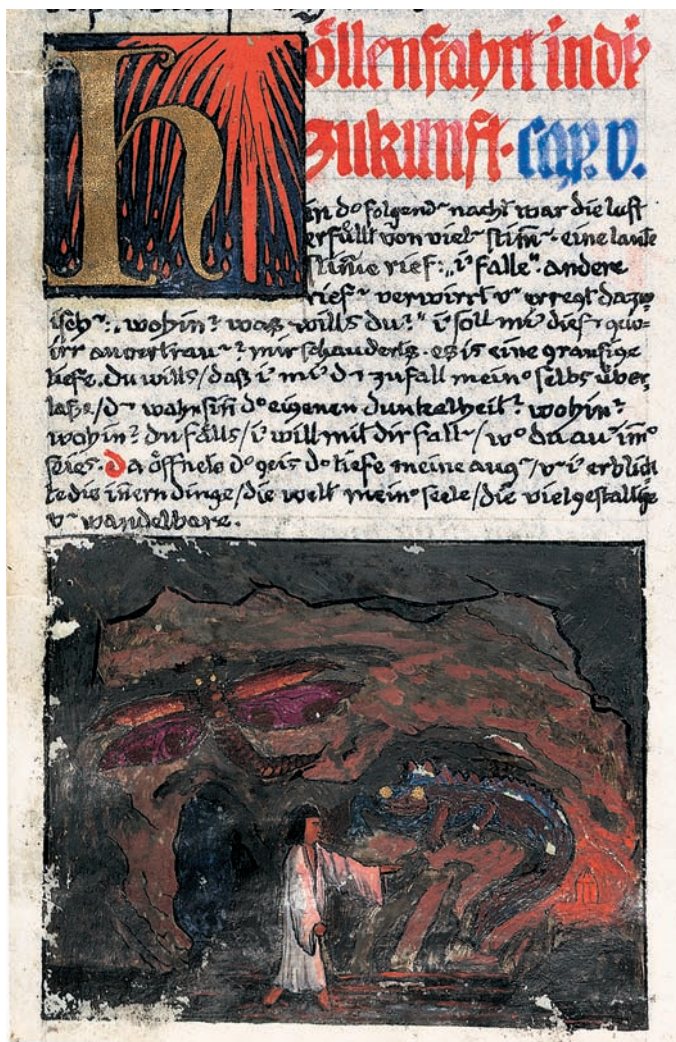 Höllenfahrt in di'
Zukunft. cap. v.
in d° folgend~ nacht war die luft
erfüllt von viel~ stim̄~. eine laute
stim̄e rief: „i' falle". andere
rief~ verwirrt v~ erregt dazw
isch~: „wohin? was wills du?" i' soll mi' dies~ gew-
irr anvertrau~? mir schauderts. es is eine grausige
tiefe. du wills/daß i' mi' d~ zufall mein° selbs über
laße/d~ wahnsin̄ d° eigenen dunkelheit? wohin?
wohin? du fälls/i' will mit dir fall~/w° du au' im̄°
seies. Da öffnete d° geis d° tiefe meine aug~/v~ i' erblick
te die in̄ern dinge/die welt mein° seele/die vielgestaltige
v~ wandelbare.